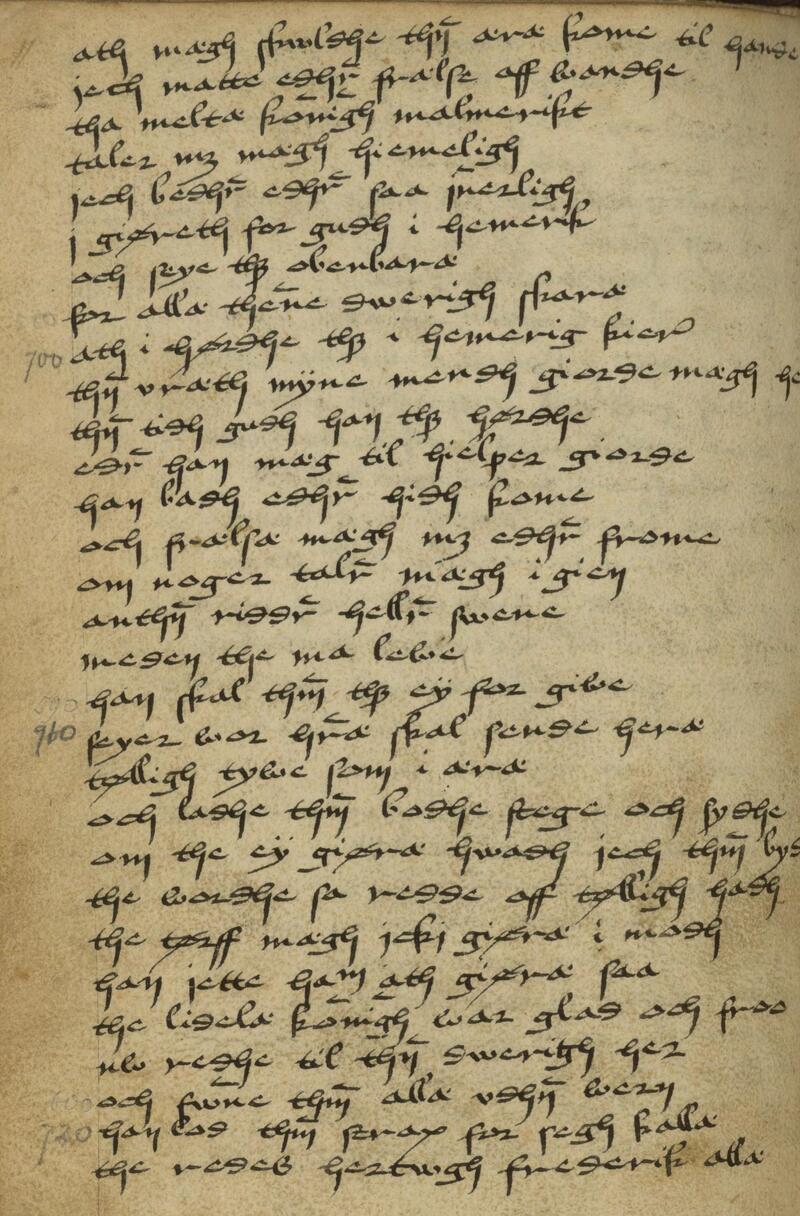 ath mægh skwldhe thn̄ æræ kome til hande
jech matte edhr̄ frælse off wandhe
tha meltæ kōnīgh malmerikt
taler mꝫ mægh hiemeligh
jech bedhr̄ edhr̄ saa jn̄erligh
j giøreth for gudh i hemerik
och seye thꝫ obenbaræ
for allæ then̄e dwerigh skaræ
700 ath i hørdhe thꝫ i hemerig kier
thn̄ vræth myne mendh giorde mægh he
thn̄ tidh gudh han thꝫ hørdhe
edr̄ han mæg til hielper giorde
han badh edhr̄ hidh kome
och frælsæ mægh mꝫ edhr̄ frome
om noger talr̄ mægh i gien
anthn̄ riddr̄ hellr̄ swene
meden the ma lewe
han skal thm̄ thꝫ ey for giwe
910 seyer wor hr̄æ skal sende heræ
tølligh tywe som i æræ
och ladhe thm̄ bodhe stege och sydhe
om the ey giøræ hwadh jech thm̄ byd
the wordhe sa redde off tølligh hadh
the tørff mægh jcki giøræ i modh
han jette ham ath giøræ saa
the lidelæ kōnīgh war glad och froo
nw redhe til thn̄ dwerigh her
och fwn̄e thm̄ allæ vdhn̄ wern
720 han bod thm̄ strax for segh kallæ
the redeß hertwgh frederik allæ